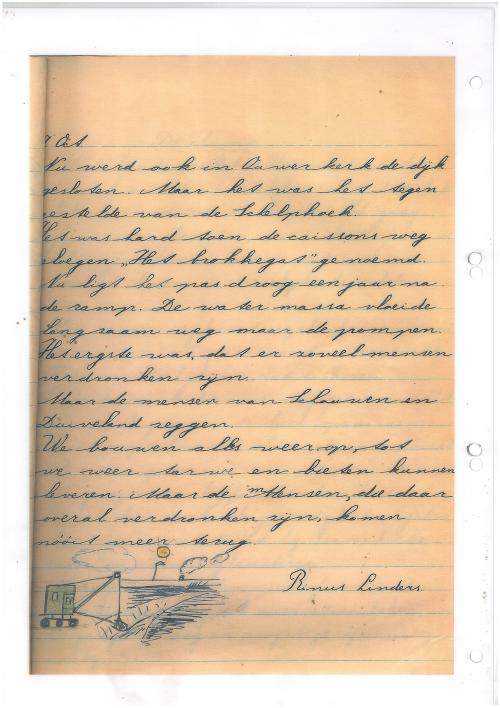 7 Oct
Nu werd ook in Ouwerkerk de dijk
gesloten. Maar het was het tegen
gestelde van de Schelphoek.
Het was hard toen de caissons weg
vlogen „Het brokkegat" genoemd.
Nu ligt het pas droog een jaar na
de ramp. De water massa vloeide
langzaam weg maar de pompen.
Het ergste was, dat er zoveel mensen
verdronken zijn.
Maar de mensen van Schouwen en
Duiveland zeggen.
We bouwen alles weer op, tot
we weer tarwe en bieten kunnen
leveren. Maar de mensen, die daar
overal verdronken zijn, komen
nóóit meer terug.
Rinus Linders.